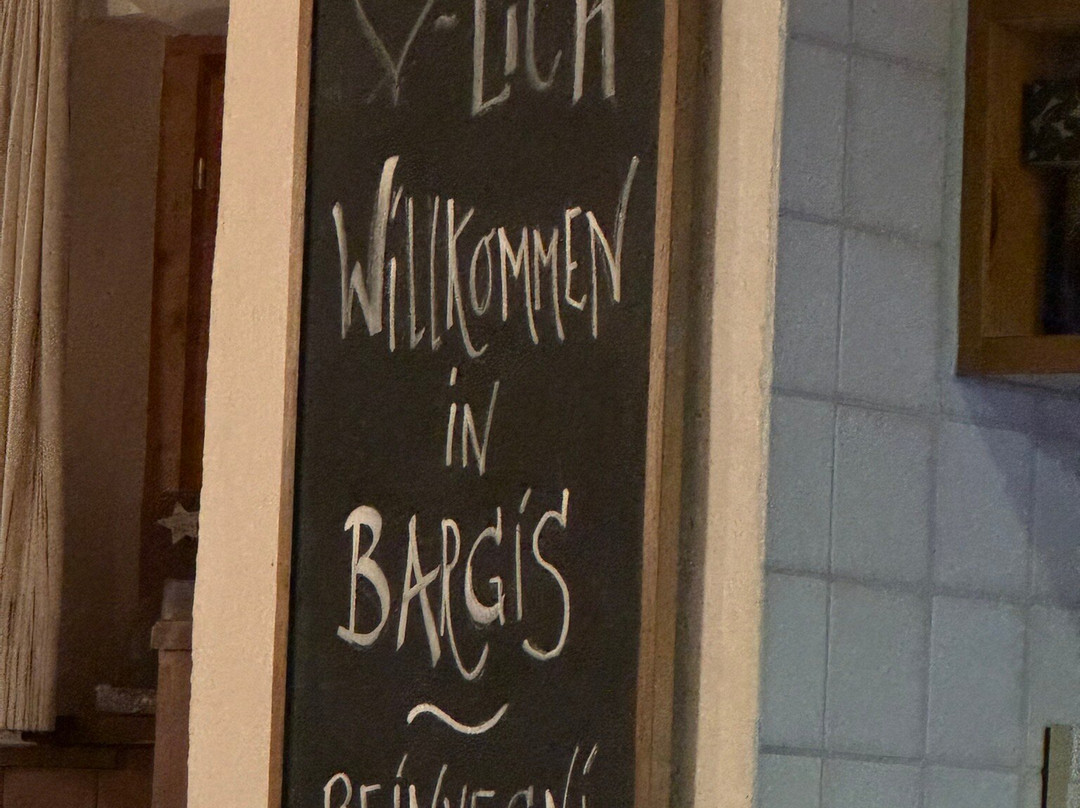 ♡-LiCH
WiLLKOMMEN
iN
BARGiS
~
BEiNVEGNi